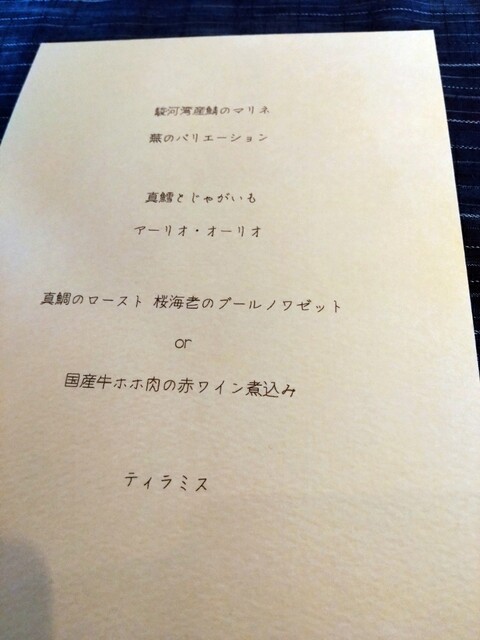 駿河湾産鯖のマリネ
蕪のバリエーション
真鱈とじゃがいも
アーリオ・オーリオ
真鯛のロースト 桜海老のブールノワゼット
or
国産牛ホホ肉の赤ワイン煮込み
ティラミス